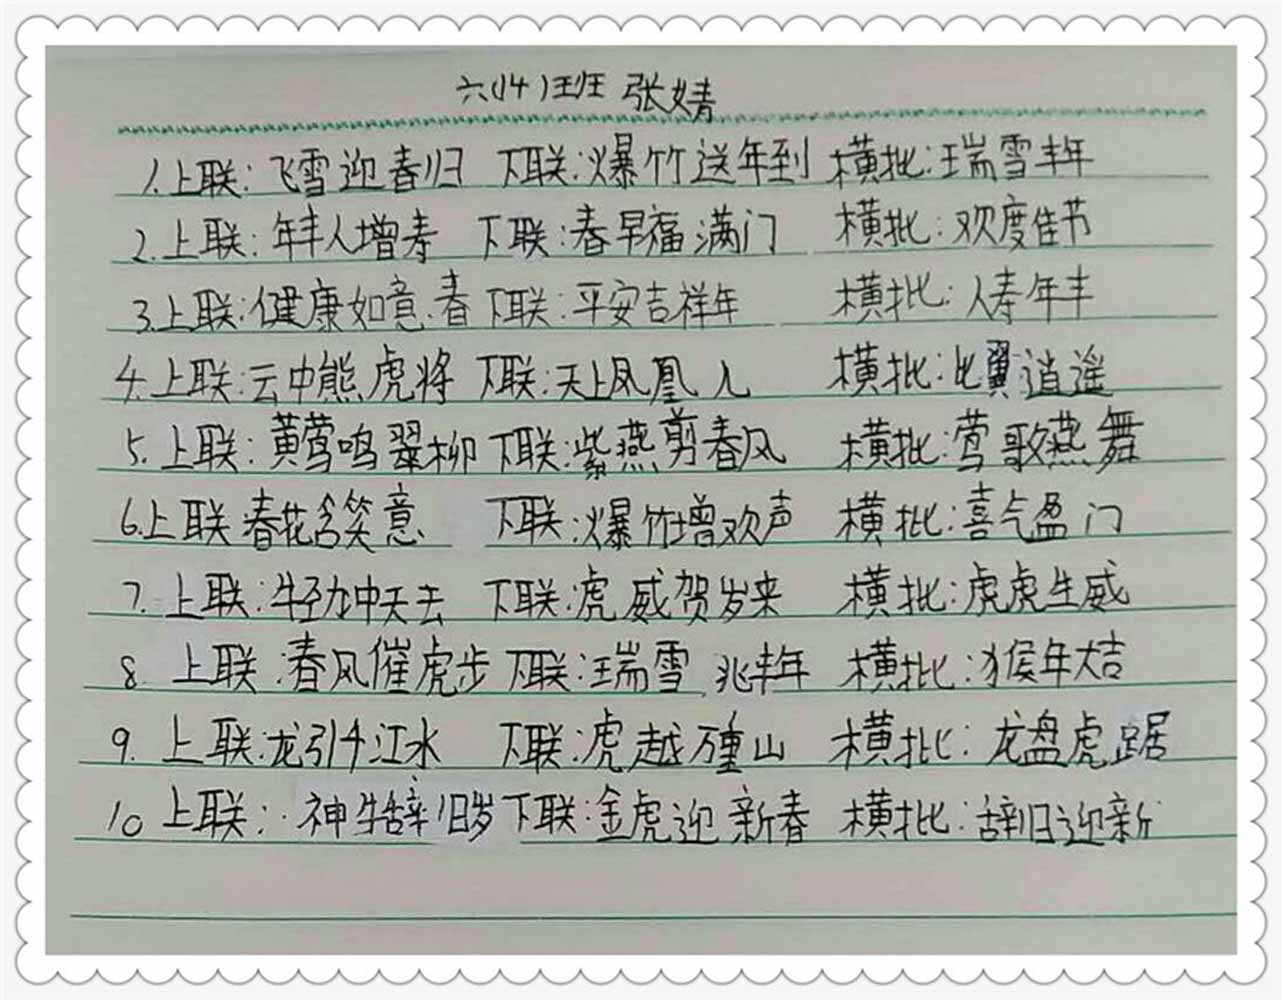 六(14)班 张婧
1.上联:飞雪迎春归 下联:爆竹送年到 横批:瑞雪丰年
2.上联:年丰人增寿 下联:春早福满门 横批:欢度佳节
3.上联:健康如意春 下联:平安吉祥年 横批:人寿年丰
4.上联:云中熊虎将 下联:天上凤凰儿 横批:比翼逍遥
5.上联:黄莺鸣翠柳 下联:紫燕剪春风 横批:莺歌燕舞
6.上联 春花含笑意 下联:爆竹增欢声 横批:喜气盈门
7.上联:牛劲冲天去 下联:虎威贺岁来 横批:虎虎生威
8.上联:春风催虎步 下联:瑞雪兆丰年 横批:猴年大吉
9.上联:龙引千江水 下联:虎越万重山 横批:龙盘虎踞
10 上联:神牛辞旧岁 下联:金虎迎新春 横批:辞旧迎新